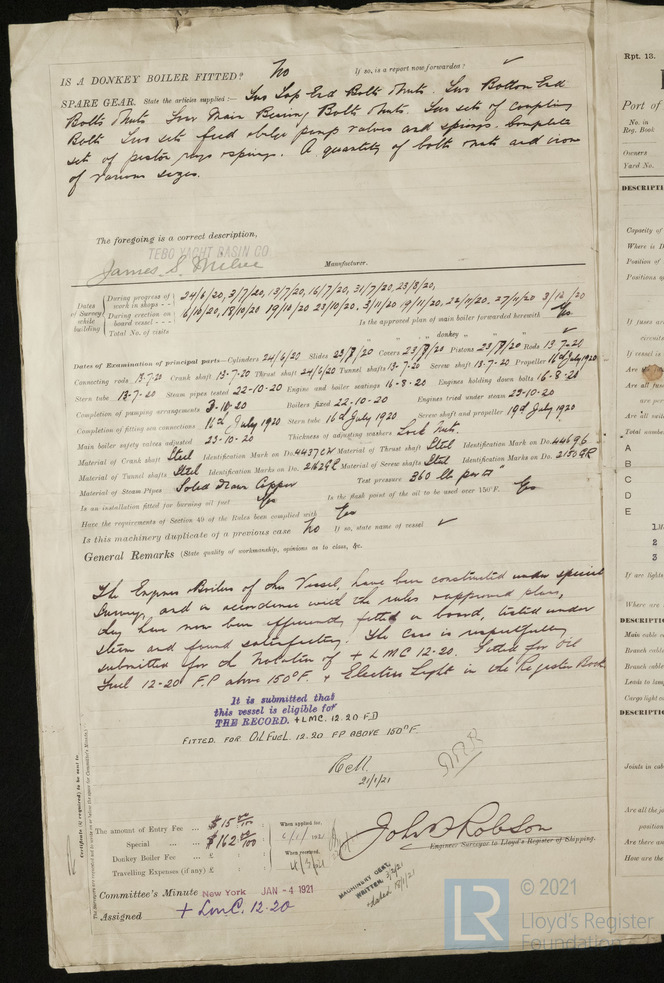 IS A DONKEY BOILER FITTED? No If so, is a report now forwarded? ✓
SPARE GEAR. State the articles supplied:— Two Top End Bolts Nuts. Two Bottom End
Bolts Nuts. Four Main Bearing Bolts Nuts. Two sets of coupling
Bolts Two sets feed bilge pump valves and springs. Complete
set of piston rings springs. A quantity of bolts nuts and iron
of various sizes.
The foregoing is a correct description,
TEBO YACHT BASIN CO
James S. Milne Manufacturer.
Dates of Survey while building
During progress of work in shops - - 24/6/20, 3/7/20, 13/7/20, 16/7/20, 31/7/20, 23/8/20,
During erection on board vessel - - - 6/10/20, 18/10/20 19/10/20 23/10/20, 3/11/20 19/11/20, 22/11/20. 27/11/20 3/12/20
Total No. of visits Is the approved plan of main boiler forwarded herewith Yes
" " " donkey " " " ✓
Dates of Examination of principal parts—Cylinders 24/6/20 Slides 23/8/20 Covers 23/8/20 Pistons 23/8/20 Rods 13-7-20
Connecting rods 13-7-20 Crank shaft 13-7-20 Thrust shaft 24/6/20 Tunnel shafts 13-7-20 Screw shaft 13-7-20 Propeller 16th July 1920
Stern tube 13-7-20 Steam pipes tested 22-10-20 Engine and boiler seatings 16-8-20 Engines holding down bolts 16-8-20
Completion of pumping arrangements 3-10-20 Boilers fixed 22-10-20 Engines tried under steam 23-10-20
Completion of fitting sea connections 16th July 1920 Stern tube 16th July 1920 Screw shaft and propeller 19th July 1920
Main boiler safety valves adjusted 23-10-20 Thickness of adjusting washers Lock Nuts.
Material of Crank shaft Steel Identification Mark on Do. 4437CN Material of Thrust shaft Steel Identification Mark on Do. 44696
Material of Tunnel shafts Steel Identification Marks on Do. 2162GR Material of Screw shafts Steel Identification Marks on Do. 2150GR
Material of Steam Pipes Solid Drawn Copper Test pressure 360 lb per □"
Is an installation fitted for burning oil fuel Yes Is the flash point of the oil to be used over 150°F. Yes
Have the requirements of Section 49 of the Rules been complied with Yes
Is this machinery duplicate of a previous case No If so, state name of vessel ✓
General Remarks (State quality of workmanship, opinions as to class, &c.
The Engines Boilers of this Vessel, have been constructed under special
Survey, and in accordance with the rules approved plans,
they have now been efficiently fitted on board, tested under
steam and found satisfactory. The case is respectfully
submitted for the Notation of + LMC 12-20. Fitted for Oil
Fuel 12-20 F.P above 150°F. + Electric Light in the Register Book
It is submitted that
this vessel is eligible for
THE RECORD. + LMC. 12.20 F.D
FITTED. FOR OIL FUEL. 12.20. FP ABOVE 150°F.
21/1/21
The amount of Entry Fee ... $ 15 00/100 When applied for,
Special ... ... $ 162 00/100 6/1/1921
Donkey Boiler Fee ... £ When received,
Travelling Expenses (if any) £
John Robson
Engineer Surveyor to Lloyd's Register of Shipping.
Committee's Minute New York JAN - 4 1921
Assigned + LMC. 12-20
MACHINERY CERT.
WRITTEN
Certificate (if required) to be sent to
Rpt. 13.
Port of
No. in
Reg. Book
Owners
Yard No.
DESCRIPTI
Capacity of
Where is D
Position of
Positions of
If fuses are
circuits
If vessel is
Are all fuses
are per
Are all switch
Total number
A
B
C
D
E
1
2
3
If are lights
Where are
DESCRIPTIO
Main cable c
Branch cable
Branch cable
Leads to lamp
Cargo light c
DESCRIPTIO
Joints in cab
Are all the jo
position
Are there any
How are the
© 2021
Lloyd's Register
Foundation
LR